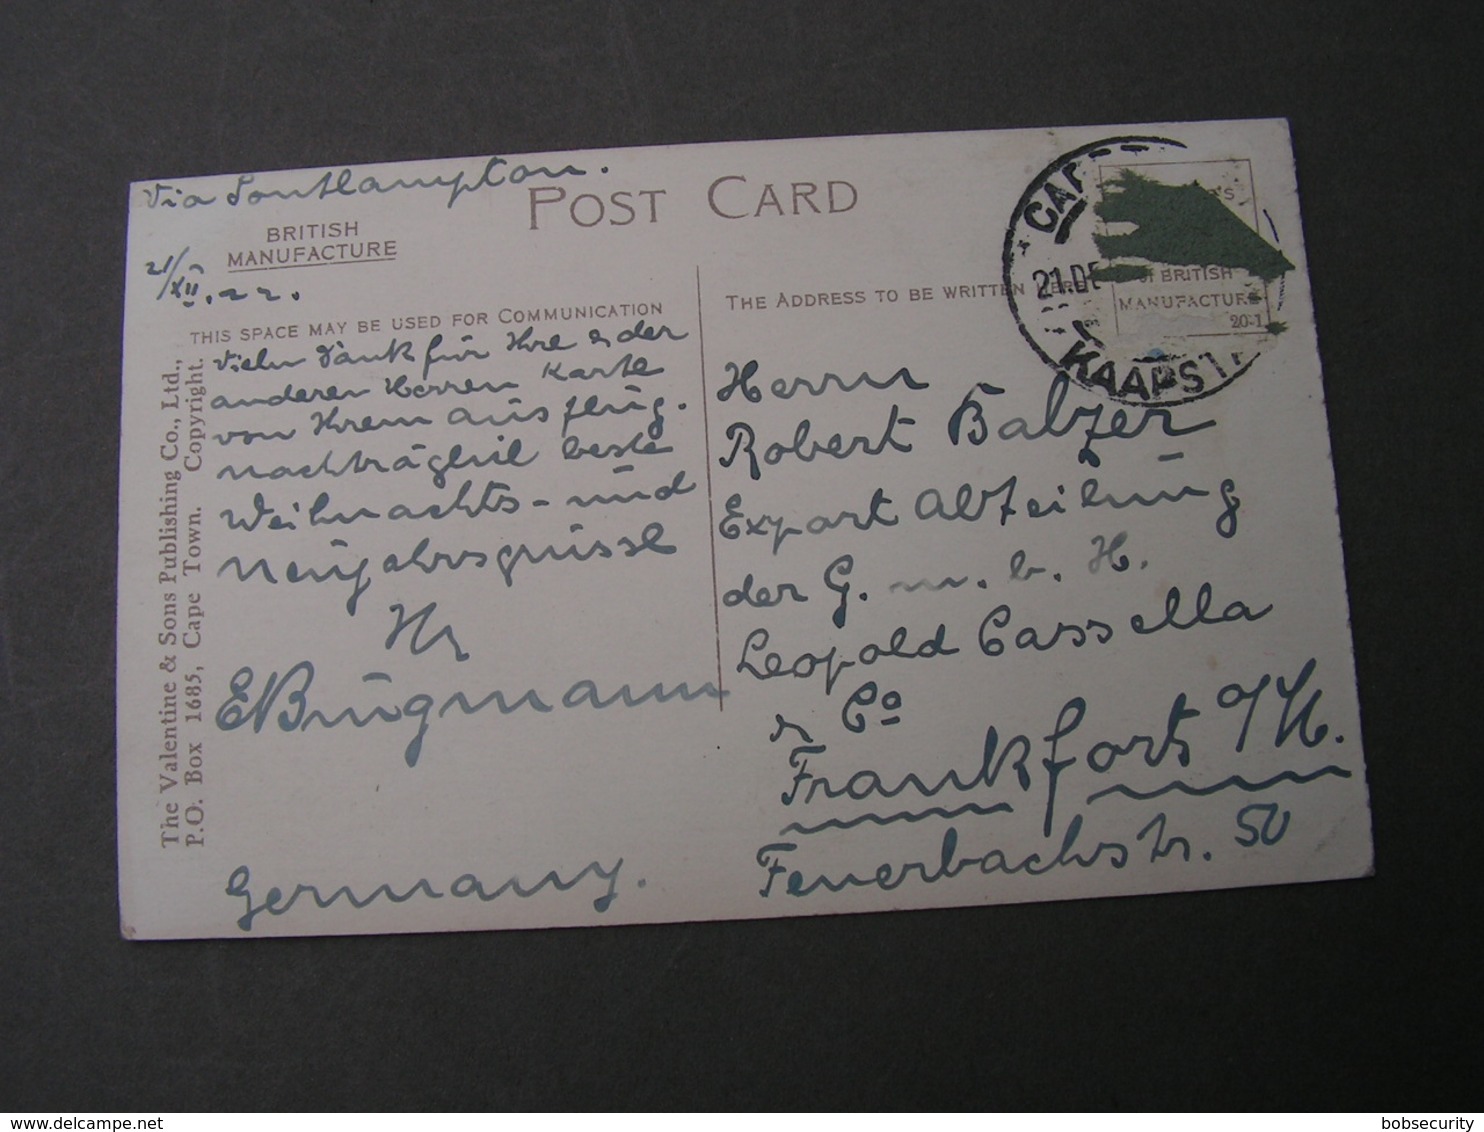 Via Southampton.
POST CARD
BRITISH
MANUFACTURE
21/XII.22.
THIS SPACE MAY BE USED FOR COMMUNICATION
THE ADDRESS TO BE WRITTEN HERE
Vielen Dank für Ihre & der
anderen Herren Karte
von Ihrem Ausflug.
nachträglich beste
Weihnachts- und
Neujahrsgrüsse
Ihr
EBrugmann
Germany.
The Valentine & Sons Publishing Co., Ltd.,
P.O. Box 1685, Cape Town. Copyright.
21.DE
KAAPST
BRITISH
MANUFACTURE
20-1
Herrn
Robert Balzer
Export Abteilung
der G. m. b. H.
Leopold Cassella
& Co
Frankfort a/M.
Feuerbachstr. 50
bobsecurity